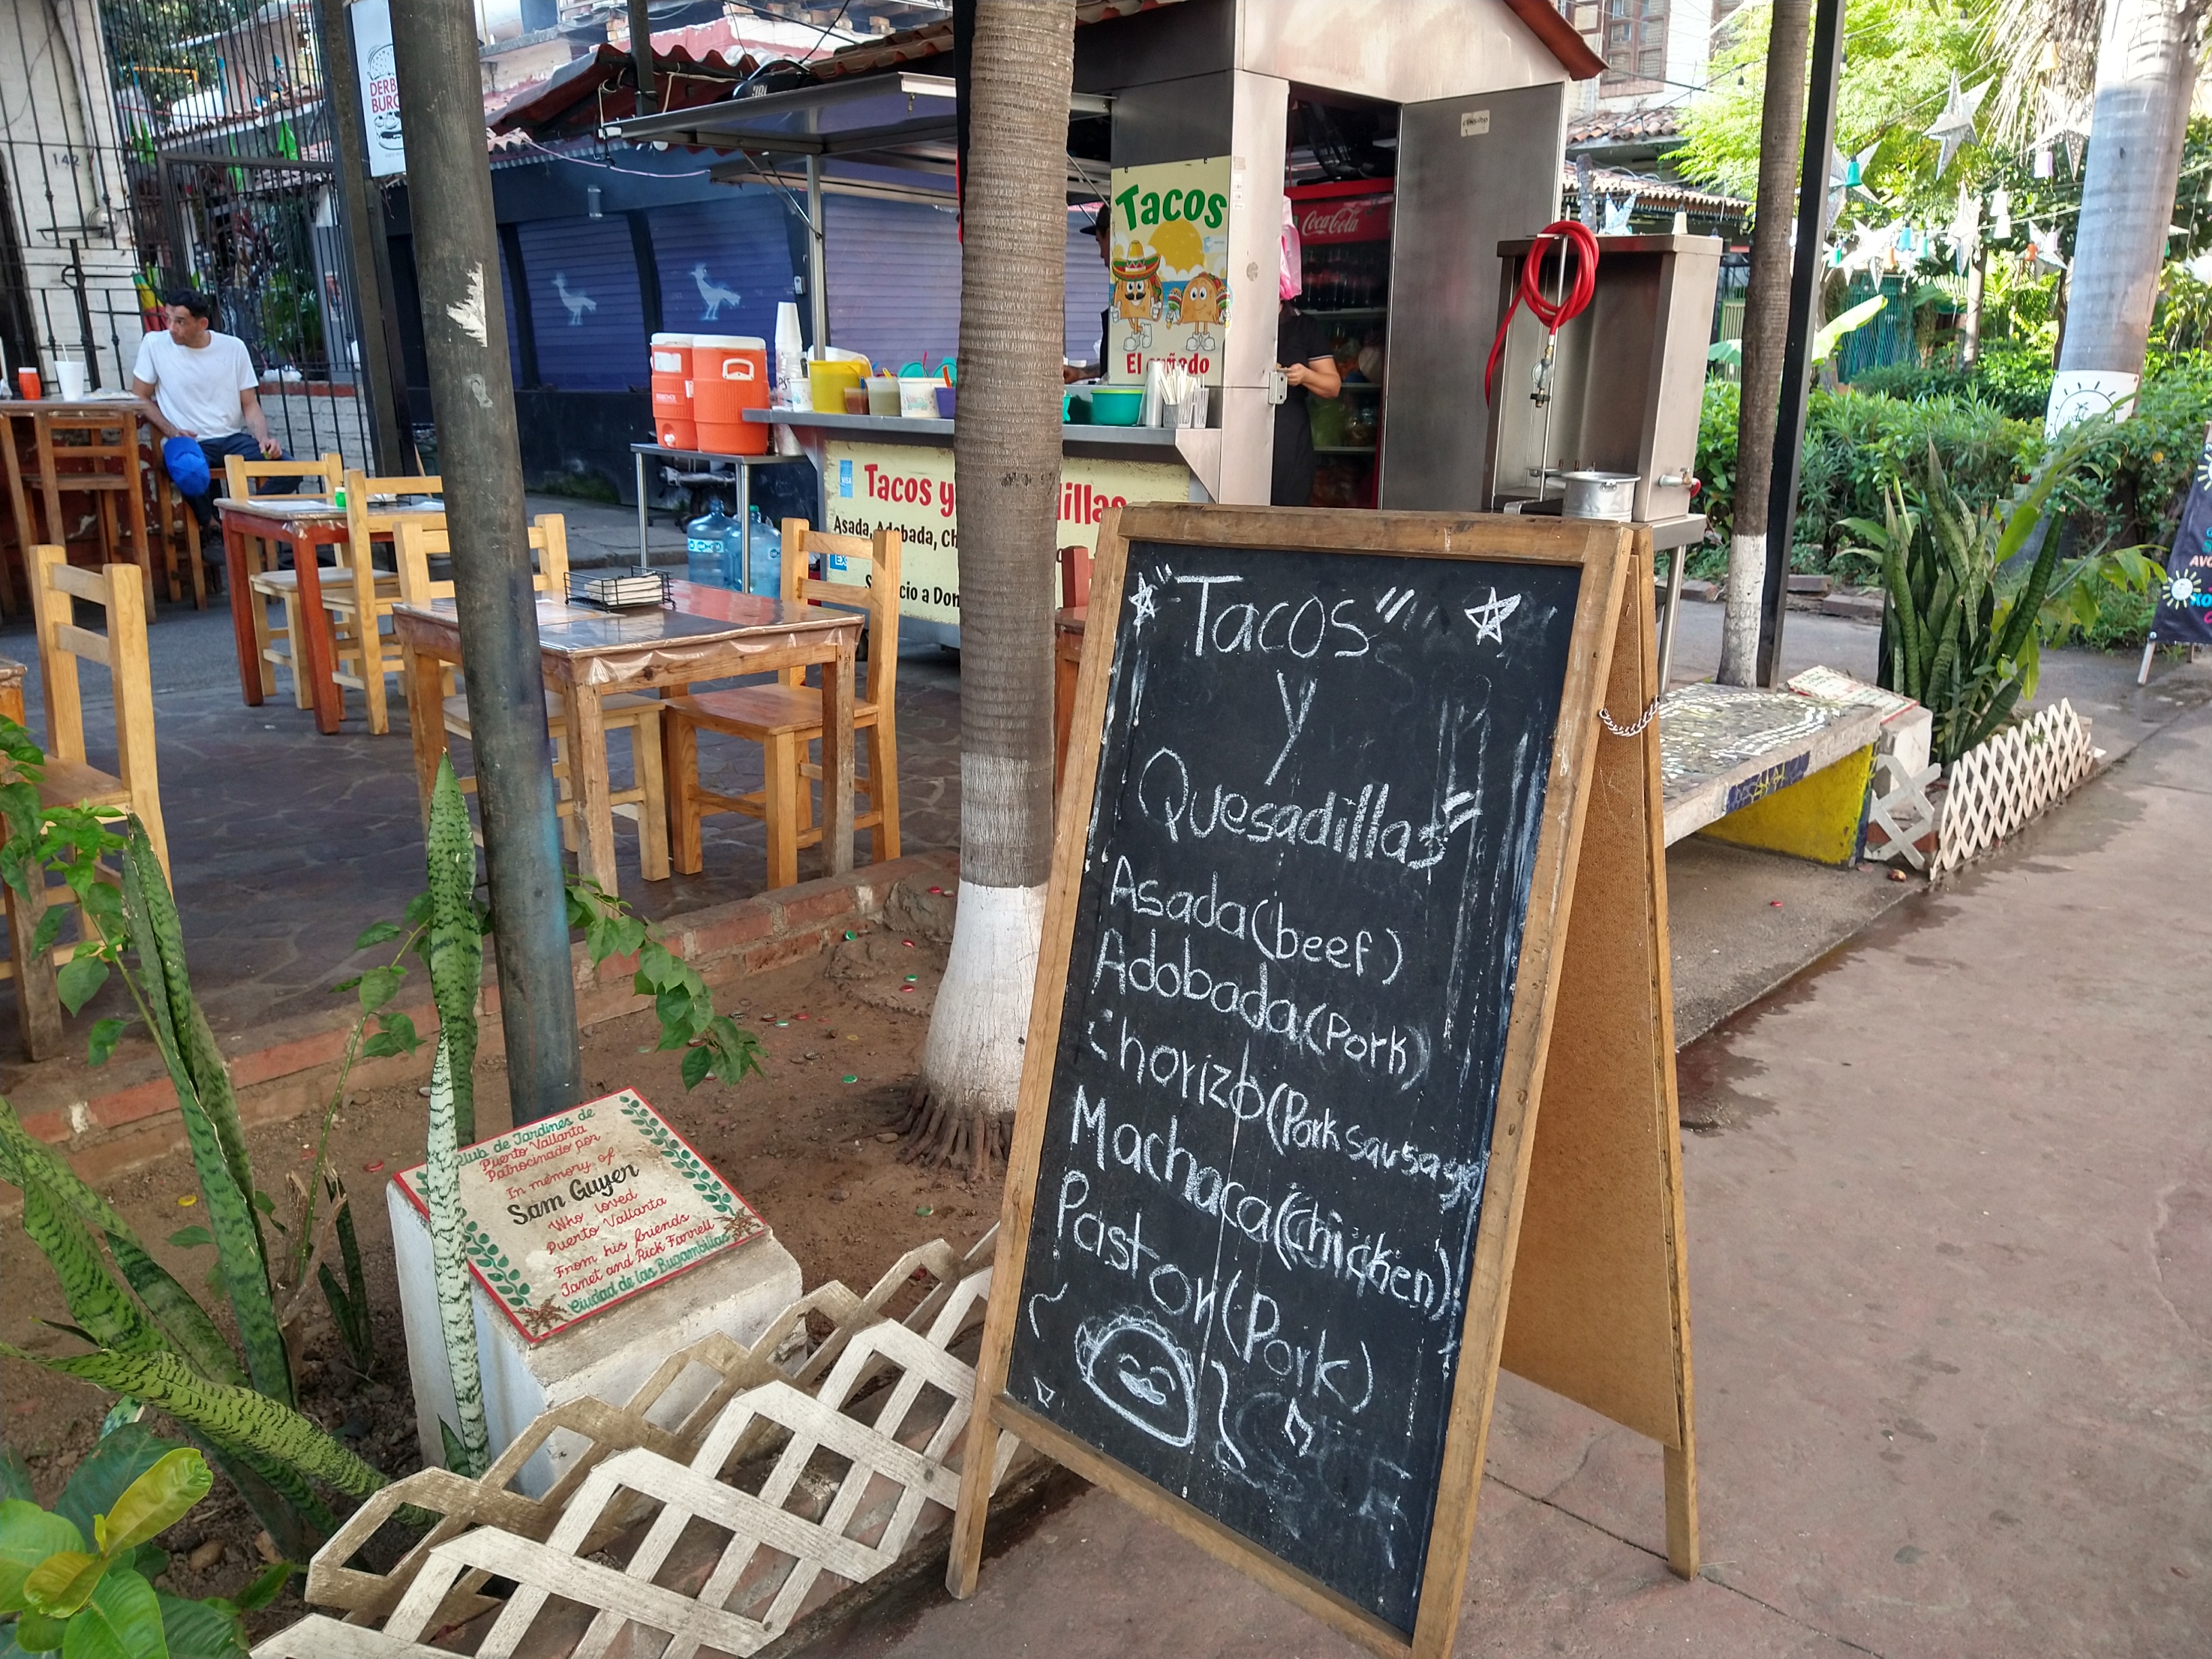 142
DERB
BURG
Tacos
El cuñado
Coca-Cola
VISA
Tacos y
illas
Asada, Adobada, Ch
cio a Dom
"Tacos"
y
Quesadillas"
Asada(beef)
Adobada(Pork)
Chorizo(Pork sausage
Machaca(Chicken)
Pastor(Pork)
Club de Jardines de
Puerto Vallarta
Patrocinado por
In memory of
Sam Guyer
Who loved
Puerto Vallarta
From his friends
Janet and Rick Farrell
Ciudad de las Bugambilias
AVO